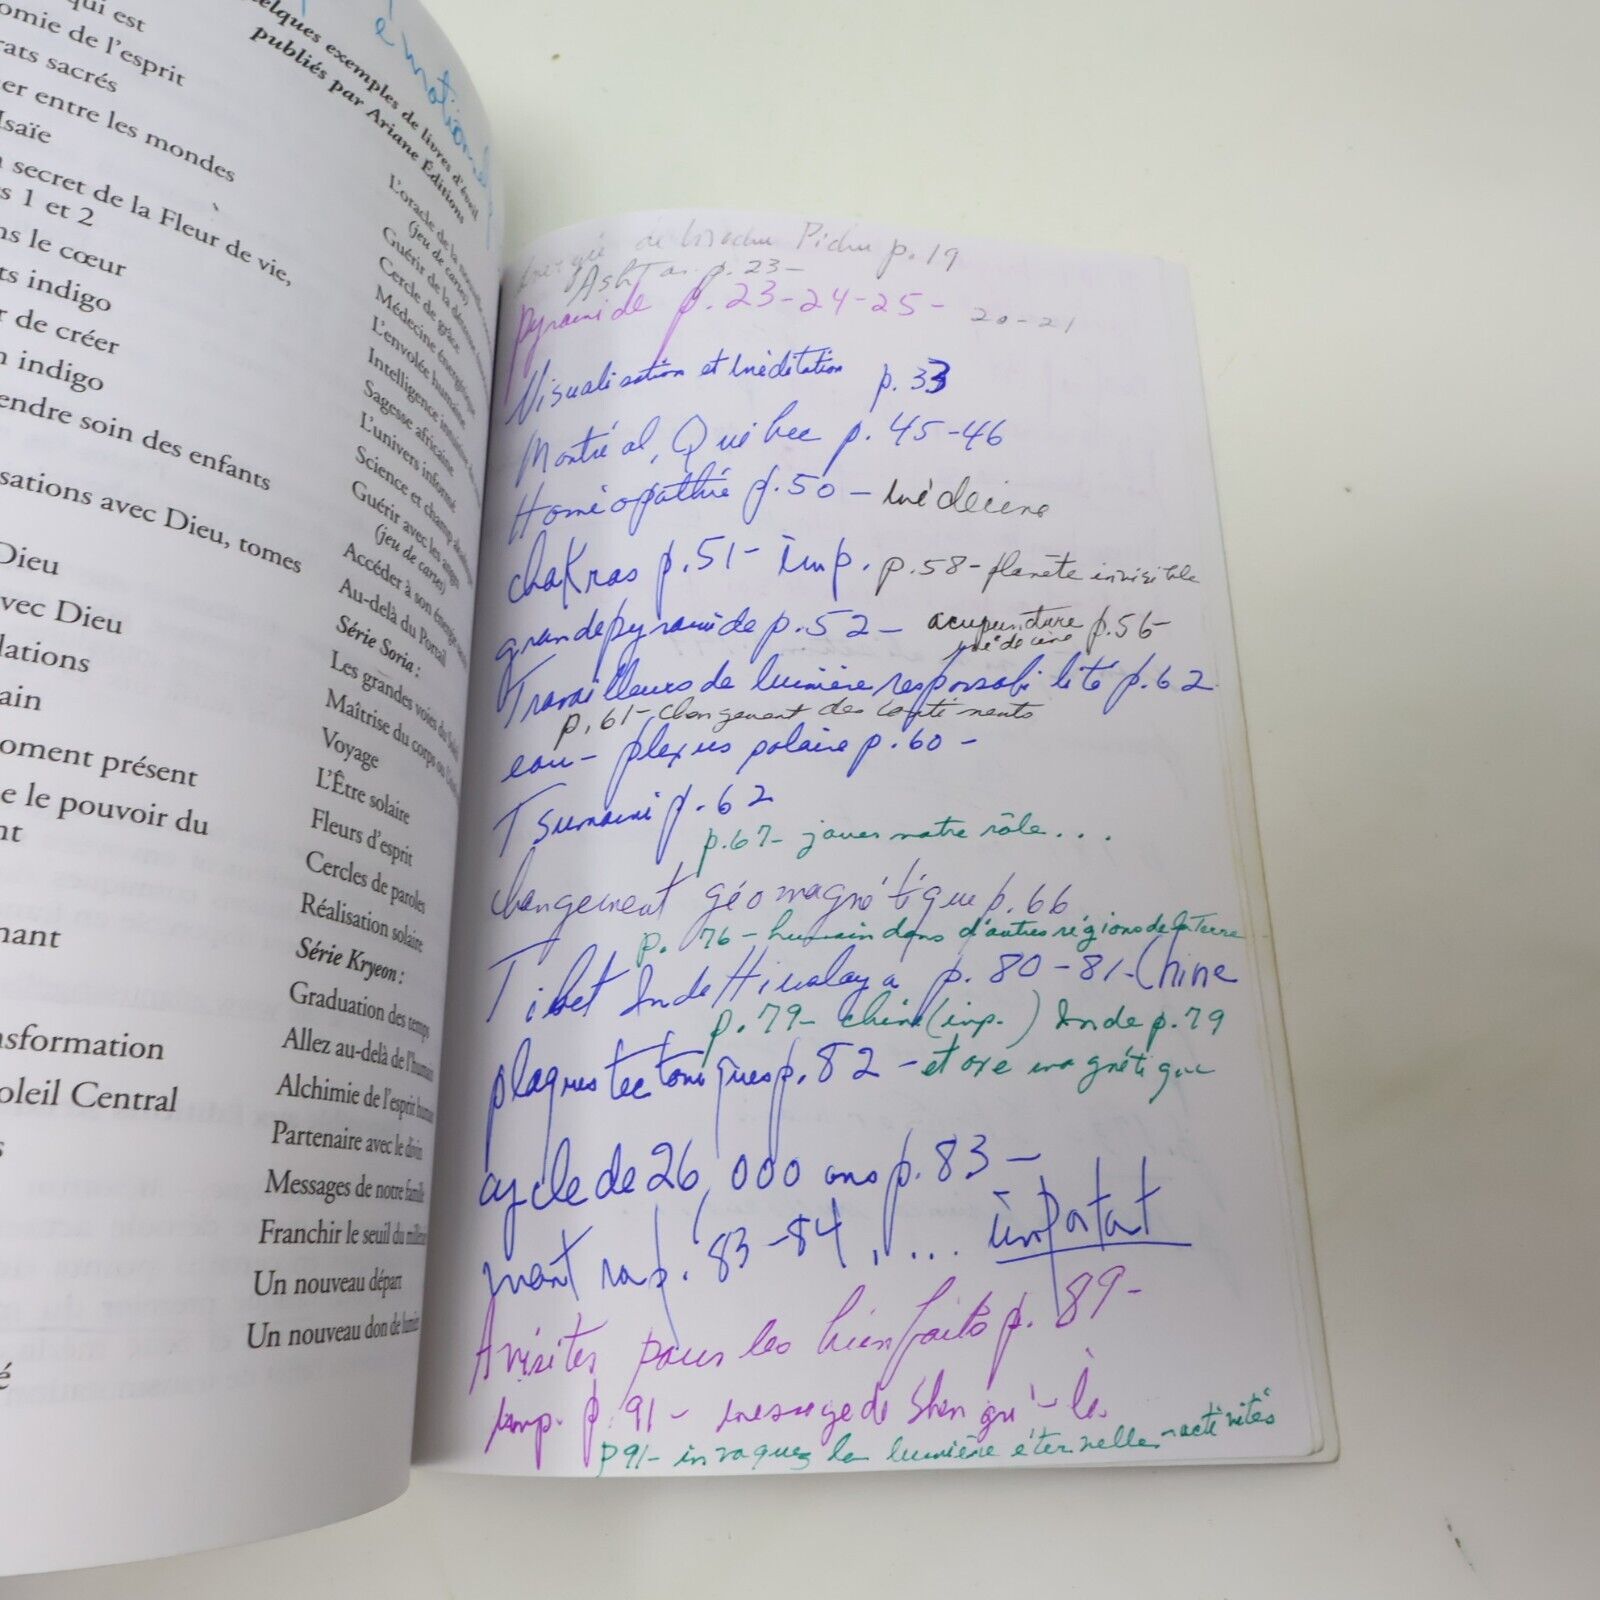 qui est
omie de l'esprit
rats sacrés
er entre les mondes
Isaïe
n secret de la Fleur de vie,
s 1 et 2
ns le cœur
ts indigo
r de créer
n indigo
endre soin des enfants
sations avec Dieu, tomes
Dieu
vec Dieu
lations
ain
oment présent
e le pouvoir du
nt
nant
nsformation
oleil Central
s
é
émotionel
elques exemples de livres d'éveil
publiés par Ariane Éditions
L'oracle de la nouvelle
(jeu de cartes)
Guérir de la
Cercle de grâce
Médecine énergétique
L'envolée humaine
Intelligence intuitive du
Sagesse africaine
L'univers informé
Science et champ akashique
Guérir avec les anges
(jeu de cartes)
Accéder à son énergie
Au-delà du Portail
Série Soria :
Les grandes voies du Soleil
Maîtrise du corps ou
Voyage
L'Être solaire
Fleurs d'esprit
Cercles de paroles
Réalisation solaire
Série Kryeon :
Graduation des temps
Allez au-delà de l'humain
Alchimie de l'esprit humain
Partenaire avec le divin
Messages de notre famille
Franchir le seuil du millénaire
Un nouveau départ
Un nouveau don de lumière
de Machu Pichu p.19
Ashtar p.23-
pyramide p.23-24-25- 20-21
Visualisation et méditation p.33
Montréal, Québec p.45-46
Homéopathie p.50 - médecine
chakras p.51- imp. p.58-planète invisible
grande pyramide p.52- acupuncture p.56-
médecine
Travailleurs de lumière responsabilité p.62
p.61-changement des continents
eau- plexus solaire p.60-
Tsunami p.62
p.67- jouer notre rôle...
changement géomagnétique p.66
p.76- humain dans d'autres régions de la Terre
Tibet Inde Himalaya p.80-81-Chine
p.79- chine(imp.) Inde p.79
plaques tectoniques p.82 - et axe magnétique
cycle de 26,000 ans p.83-
p.83-84, ... important
A visiter pour les bienfaits p.89-
imp. p.91- message de
p91- invoquez la lumière éternelle-activités